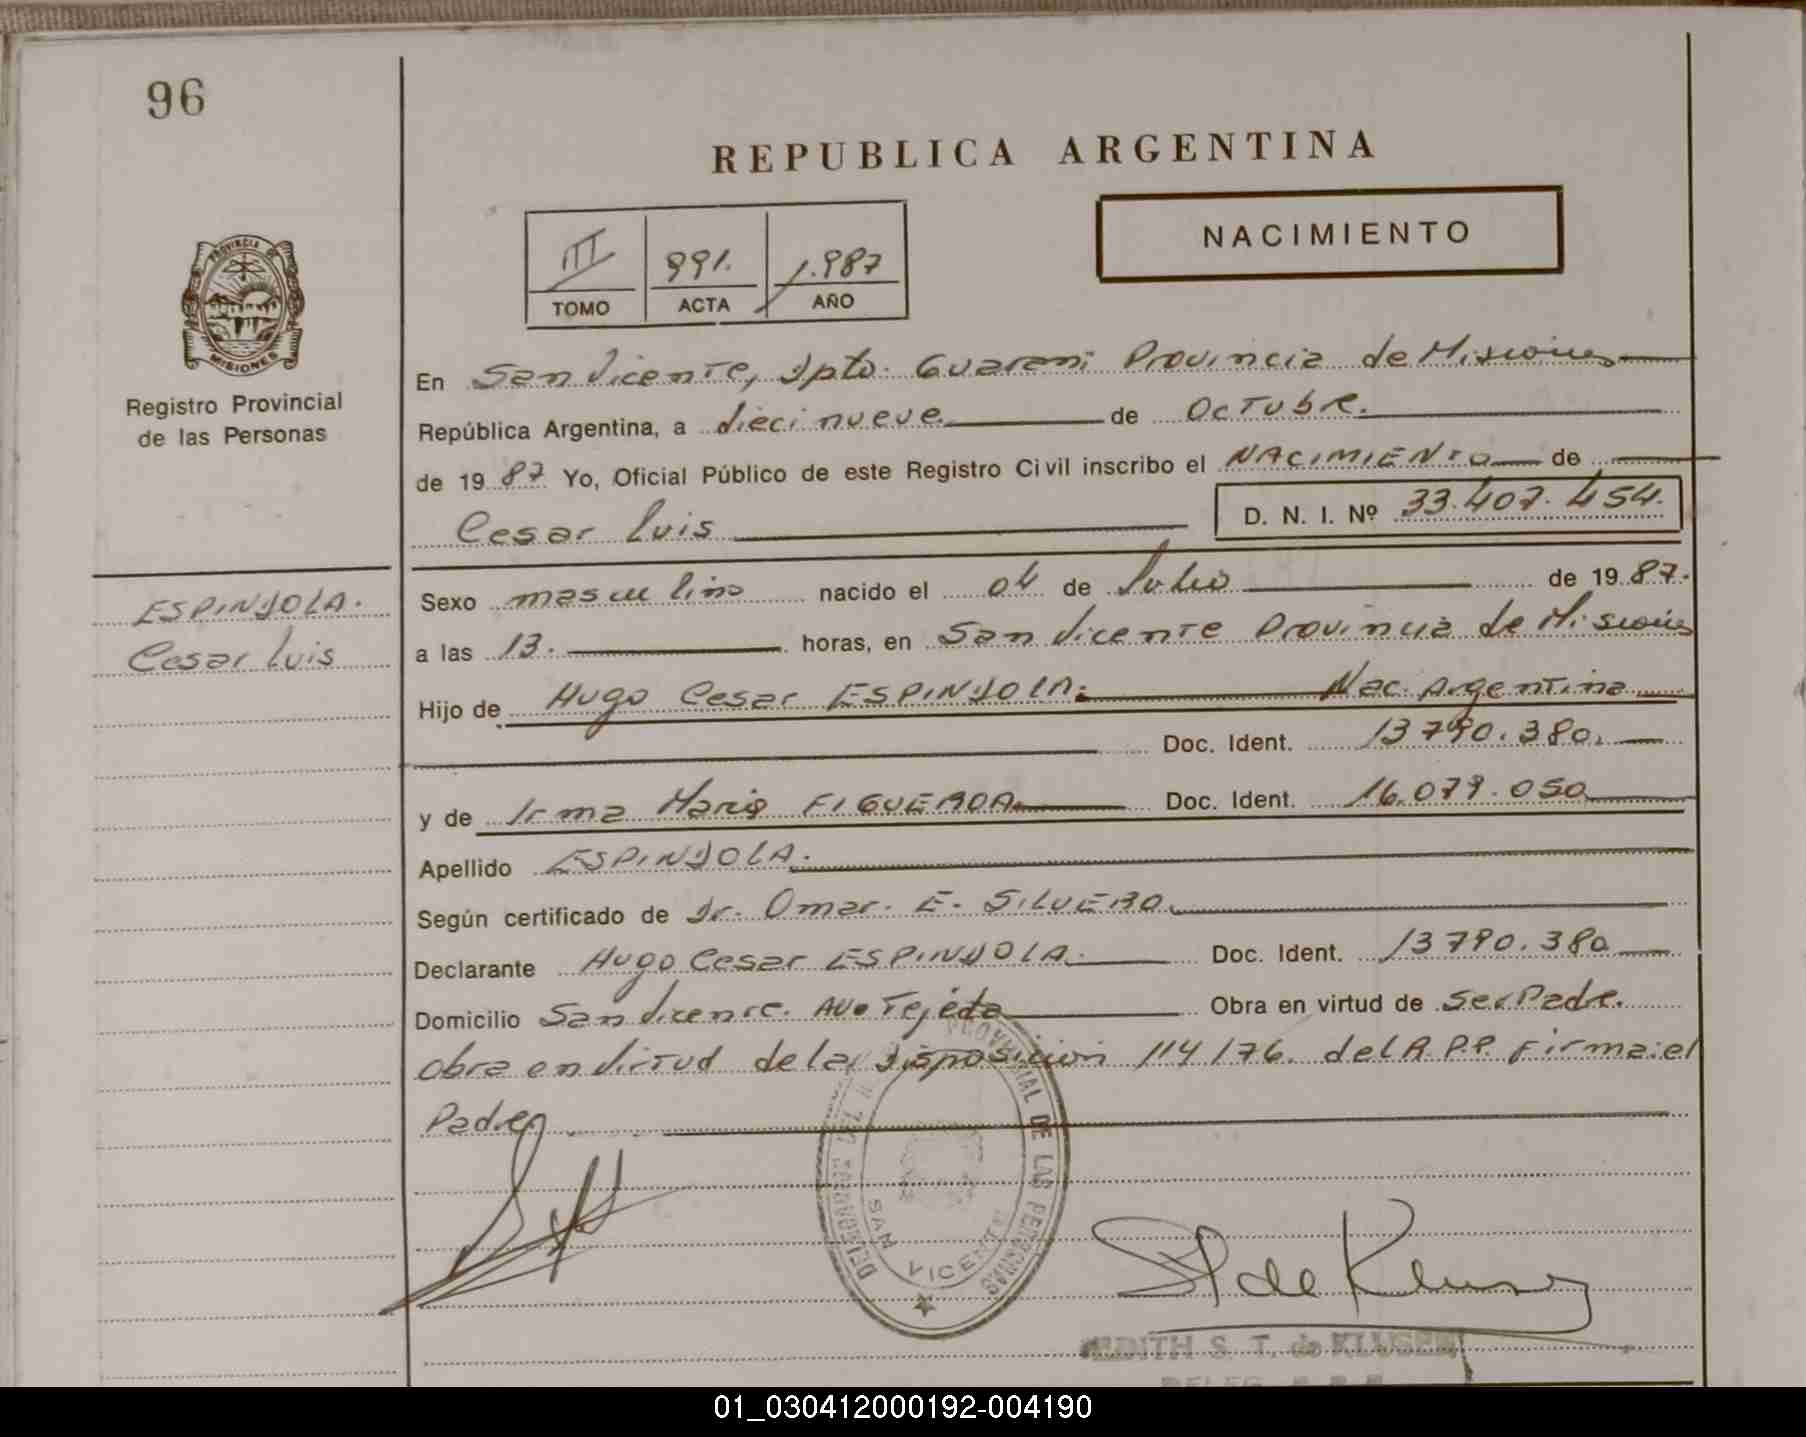 96
REPUBLICA ARGENTINA
NACIMIENTO
III 991. 1.987
TOMO ACTA AÑO
PROVINCIA DE
MISIONES
Registro Provincial
de las Personas
En San Vicente, Dpto. Guarani Provincia de Misiones
República Argentina, a diecinueve de Octubre.
de 1987 Yo, Oficial Público de este Registro Civil inscribo el NACIMIENTO de
Cesar Luis D. N. I. Nº 33.407.454.
ESPINDOLA.
Cesar Luis
Sexo masculino nacido el 04 de Julio de 1987.
a las 13. horas, en San Vicente Provincia de Misiones
Hijo de Hugo Cesar ESPINDOLA. Nac. Argentina
Doc. Ident. 13790.380.
y de Irma Maria FIGUEROA Doc. Ident. 16.079.050
Apellido ESPINDOLA.
Según certificado de Dr. Omar. E. SILVERO
Declarante Hugo Cesar ESPINDOLA. Doc. Ident. 13790.380
Domicilio San Vicente. Avo Tejeda Obra en virtud de Ser Padre.
Obra en Virtud de la Disposicion 114/76. del R.P.P. Firma: el
Padre
PROVINCIAL DE LAS PERSONAS
SAN VICENTE
St de Klusen
EDITH S. T. de KLUSEN
01_030412000192-004190